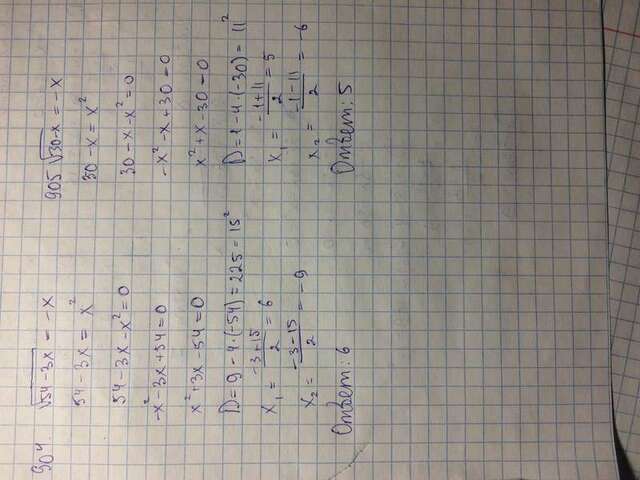 904. √(54-3x) = -x
54-3x = x²
54-3x-x²=0
-x²-3x+54=0
x²+3x-54=0
D=9-4·(-54)=225=15²
x₁ = (-3+15)/2 = 6
x₂ = (-3-15)/2 = -9
Ответ: 6
905 √(30-x) = -x
30-x=x²
30-x-x²=0
-x²-x+30=0
x²+x-30=0
D=1-4·(-30)=11²
x₁ = (-1+11)/2 = 5
x₂ = (-1-11)/2 = -6
Ответ: 5